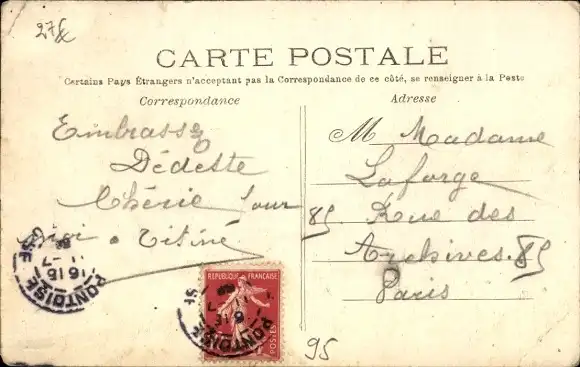 27
CARTE POSTALE
Certains Pays Étrangers n'acceptant pas la Correspondance de ce côté, se renseigner à la Poste
Correspondance
Adresse
Embrassez
Dédette
Chérie pour
moi. Titine
M Madame
Laforge
85 Rue des
Archives. 85
Paris
PONTOISE
16 15
REPUBLIQUE FRANÇAISE
POSTES
PONTOISE
95